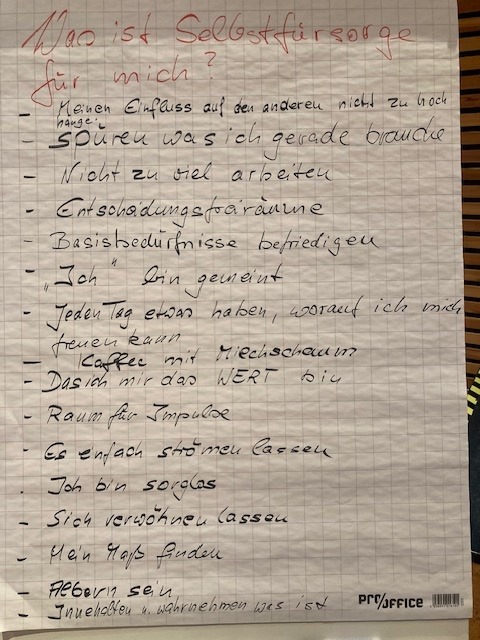 Was ist Selbstfürsorge
für mich?
- Meinen Einfluss auf den anderen nicht zu hoch
hänge.
- Spüren was ich gerade brauche
- Nicht zu viel arbeiten
- Entscheidungsfreiräume
- Basisbedürfnisse befriedigen
- "Ich" bin gemeint
- Jeden Tag etwas haben, worauf ich mich
freuen kann
- Kaffee mit Miechschaum
- Das ich mir das WERT bin
- Raum für Impulse
- Es einfach strömen lassen
. Ich bin sorglos
- Sich verwöhnen lassen
- Mein Maß finden
- Albern sein
- Innehalten u. wahrnehmen was ist
PRO/OFFICE